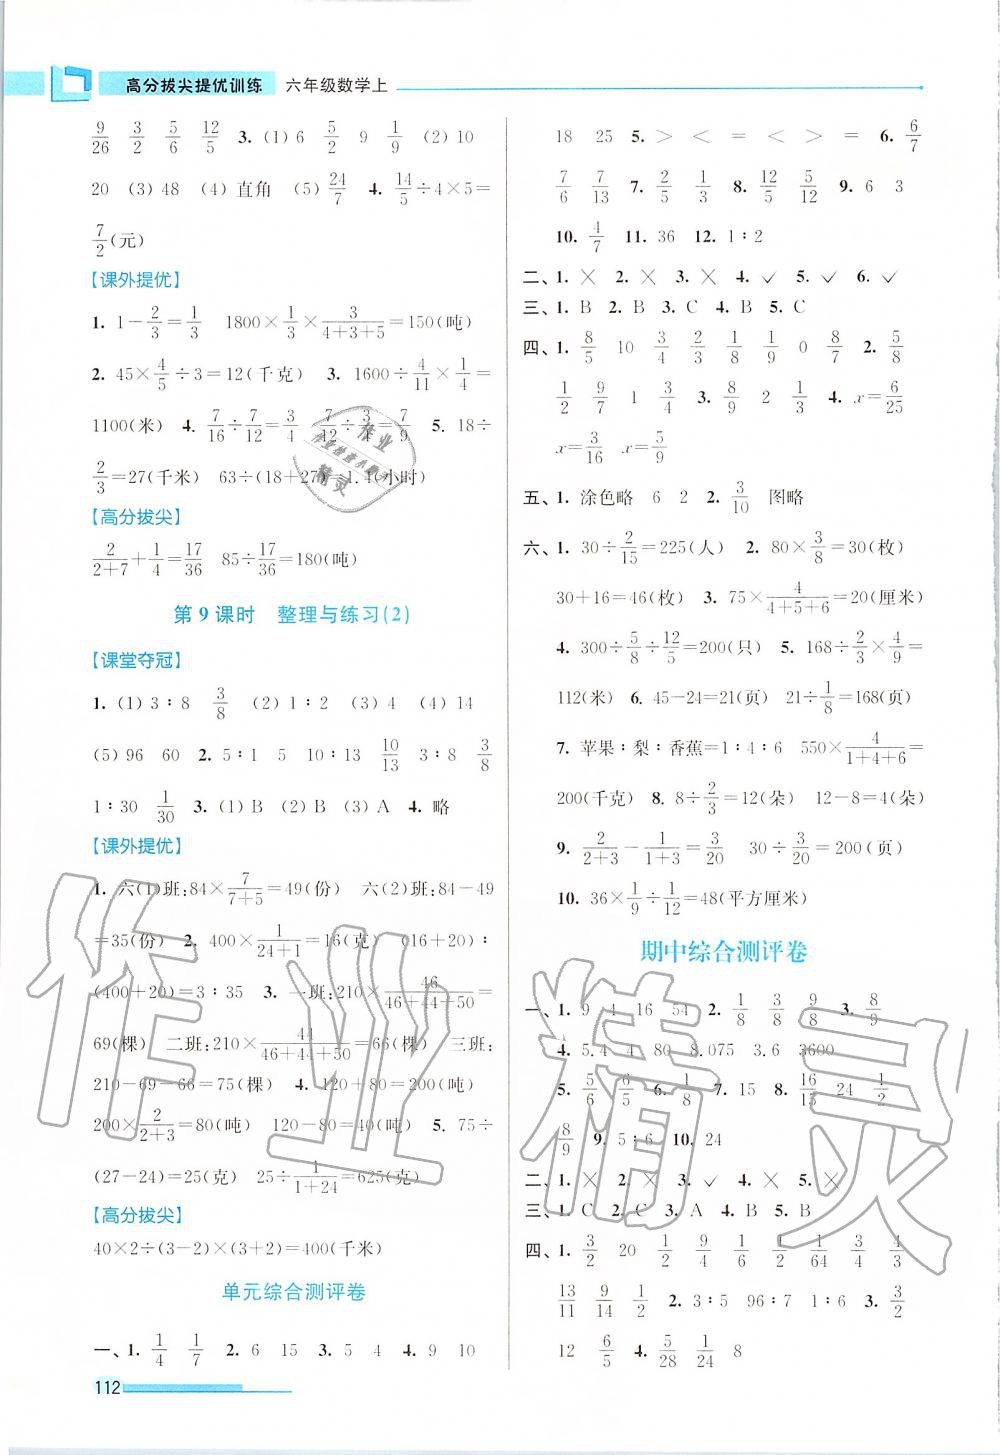 高分拔尖提优训练 六年级数学上
9/26 3/2 5/6 12/5 3. (1) 6 5/2 9 1/9 (2) 10
20 (3) 48 (4) 直角 (5) 24/7 4. 14/5÷4×5=
7/2(元)
【课外提优】
1. 1-2/3=1/3 1800×1/3×3/(4+3+5)=150(吨)
2. 45×4/5÷3=12(千克) 3. 1600÷4/11×1/4=
1100(米) 4. 7/16÷7/12=3/4 7/12÷3/4=7/9 5. 18÷
2/3=27(千米) 63÷(18+27)=1.4(小时)
【高分拔尖】
2/(2+7)+1/4=17/36 85÷17/36=180(吨)
第9课时 整理与练习(2)
【课堂夺冠】
1. (1) 3∶8 3/8 (2) 1∶2 (3) 4 (4) 14
(5) 96 60 2. 5∶1 5 10∶13 10/13 3∶8 3/8
1∶30 1/30 3. (1) B (2) B (3) A 4. 略
【课外提优】
1. 六(1)班:84×7/(7+5)=49(份) 六(2)班:84-49
=35(份) 2. 400×1/(24+1)=16(克) (16+20)∶
(400+20)=3∶35 3. 一班:210×46/(46+44+50)=
69(棵) 二班:210×44/(46+44+50)=66(棵) 三班:
210-69-66=75(棵) 4. 120+80=200(吨)
200×2/(2+3)=80(吨) 5. 75÷
(27-24)=25(克) 25÷1/(1+24)=625(克)
【高分拔尖】
40×2÷(3-2)×(3+2)=400(千米)
单元综合测评卷
一、1. 1/4 1/7 2. 6 15 3. 5 4 4. 9 10
112
18 25 5. > < = > < > = 6. 6/7
7/6 7/13 7. 2/5 1/3 8. 12/5 5/12 9. 6 3
10. 4/7 11. 36 12. 1∶2
二、1. × 2. × 3. × 4. ✓ 5. ✓ 6. ✓
三、1. B 2. B 3. C 4. B 5. C
四、1. 8/5 10 3/4 2/3 1/8 1/9 0 8/7 2. 5/8
1/2 9/7 1 3/4 3. 8/9 2 1/3 4. x=6/25
x=3/16 x=5/9
五、1. 涂色略 6 2 2. 3/10 图略
六、1. 30÷2/15=225(人) 2. 80×3/8=30(枚)
30+16=46(枚) 3. 75×4/(4+5+6)=20(厘米)
4. 300÷5/8÷12/5=200(只) 5. 168÷2/3×4/9=
112(米) 6. 45-24=21(页) 21÷1/8=168(页)
7. 苹果∶梨∶香蕉=1∶4∶6 550×4/(1+4+6)=
200(千克) 8. 8÷2/3=12(朵) 12-8=4(朵)
9. 2/(2+3)-1/(1+3)=3/20 30÷3/20=200(页)
10. 36×1/9÷1/12=48(平方厘米)
期中综合测评卷
一、1. 9 4 16 54 2. 1/8 3/8 9/8 3. 8/9
4. 5.4 4 80 8.075 3.6 3600
5. 5/6 6/5 6. 1/8 7. 15 8. 16/15 24 1/2
8/9 9. 5∶6 10. 24
二、1. × 2. × 3. ✓ 4. × 5. ×
三、1. C 2. C 3. A 4. B 5. B
四、1. 3/2 20 1/2 9/10 1/2 1/6 3/4 4/3
13/11 9/14 1/2 2. 3∶5 96∶7 1∶6 3. 3/2
12 6/5 4. 5/28 1/24 8
作业精灵